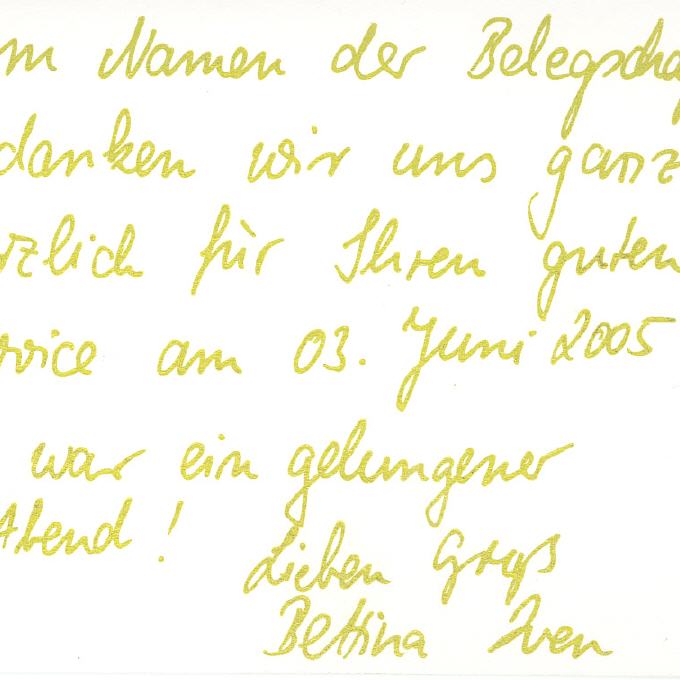 m Namen der Belegscha
danken wir uns ganz
rzlich für Ihren guten
rvice am 03. Juni 2005
war ein gelungener
Abend!
Lieben Gruß
Bettina Iven